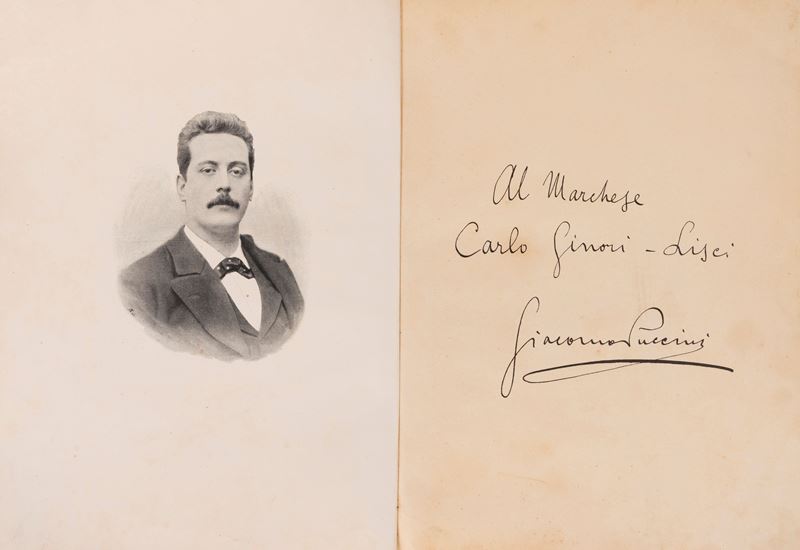 Al Marchese
Carlo Ginori - Lisci
Giacomo Puccini